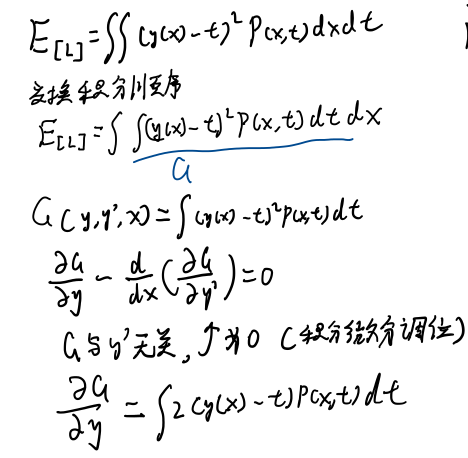 E[L]=∬(y(x)-t)²P(x,t)dxdt
交换积分顺序
E[L]=∫∫(y(x)-t)²P(x,t)dtdx
G
G(y,y',x)=∫(y(x)-t)²P(x,t)dt
∂G/∂y - d/dx(∂G/∂y')=0
G与y'无关,↑为0 (积分微分调位)
∂G/∂y = ∫2(y(x)-t)P(x,t)dt